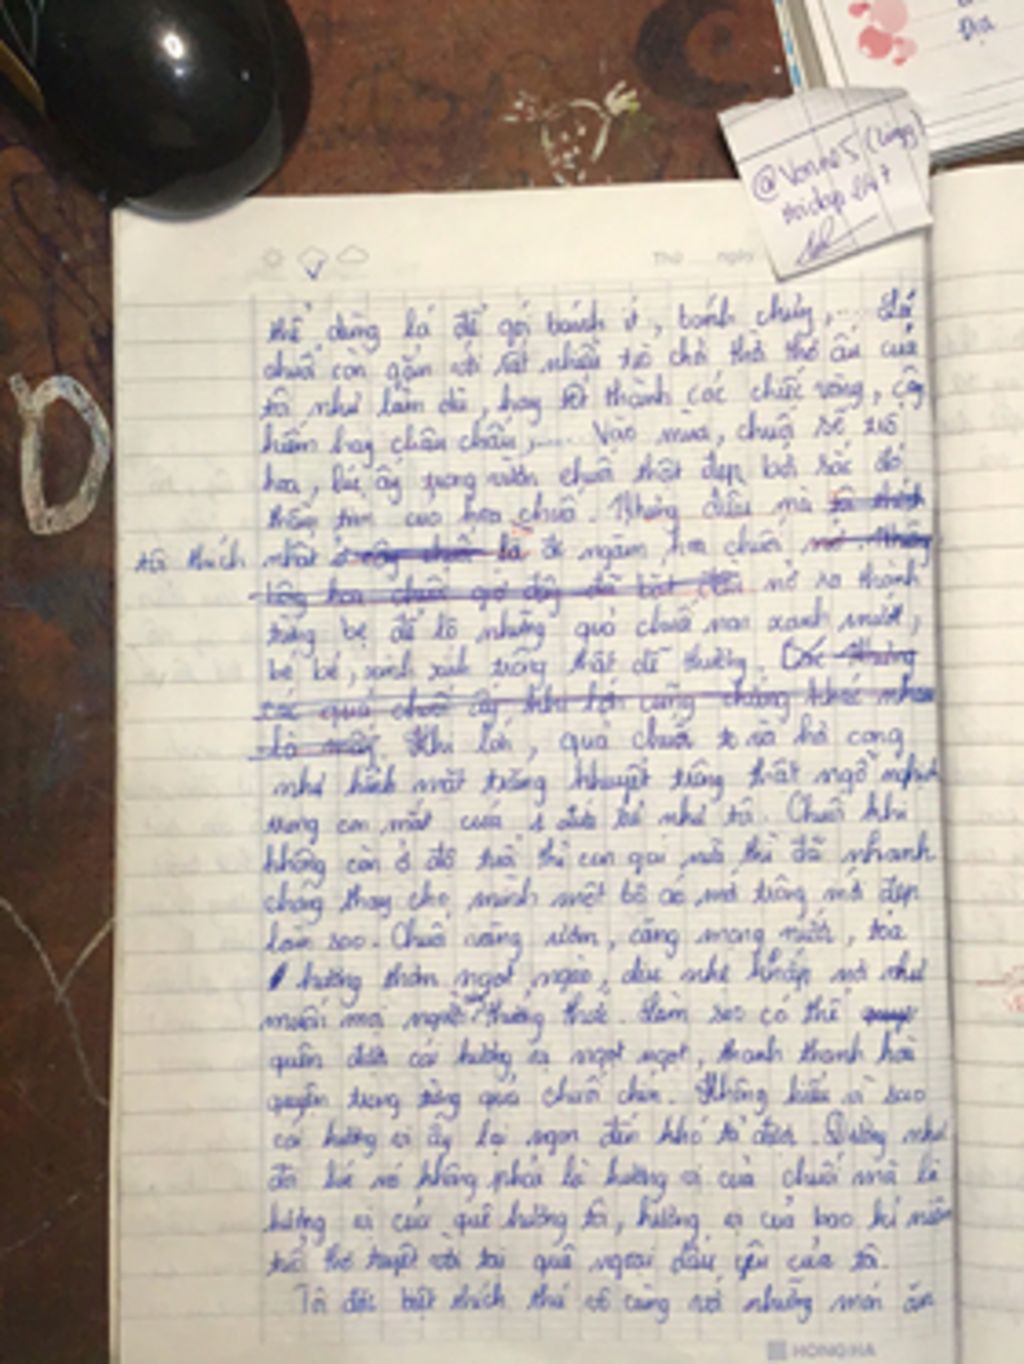 Địa
@Venno5 (Lingg)
hoidap 247
Thứ ngày
thể dùng lá để gói bánh ít, bánh chưng,... Lá
chuối còn gắn với rất nhiều trò chơi thời thơ ấu của
tôi như làm dù, hay tết thành các chiếc vòng,
hay châu chấu,.... Vào mùa, chuối sẽ trổ
hoa, lúc ấy trong vườn chuối thật đẹp bởi sắc đỏ
thắm tím của hoa chuối. Nhưng điều mà tôi thích
tôi thích nhất ở cây chuối là để ngắm hoa chuối nở. Những
bông hoa chuối giờ đây đã bắt đầu nở ra thành
từng bẹ để lộ những quả chuối non xanh mướt,
bé bé, xinh xinh trông thật dễ thương. Các Nhưng
các quả chuối ấy khi lớn cũng chẳng khác nhau
là mấy. Khi lớn, quả chuối to và hơi cong
như hình mặt trăng khuyết trông thật ngộ nghĩnh
trong con mắt của 1 đứa trẻ như tôi. Chuối khi
không còn ở độ tuổi thì con gái nữa thì đã nhanh
chóng thay cho mình một bộ áo mới trông mới đẹp
làm sao. Chuối vàng ươm, căng mọng nước, tỏa
hương thơm ngọt ngào, dịu nhẹ khắp nơi như
muốn mọi người thưởng thức. Làm sao có thể
quên được cái hương vị ngọt ngọt, thanh thanh hòa
quyện trong từng quả chuối chín. Không hiểu vì sao
cái hương vị ấy lại ngon đến khó tả được. Dường như
đôi lúc nó không phải là hương vị của chuối mà là
hương vị của quê hương tôi, hương vị của bao kỉ niệm
tuổi thơ tuyệt vời tại quê ngoại dấu yêu của tôi.
Tôi đặc biệt thích thú vô cùng với những món ăn
HONG HA